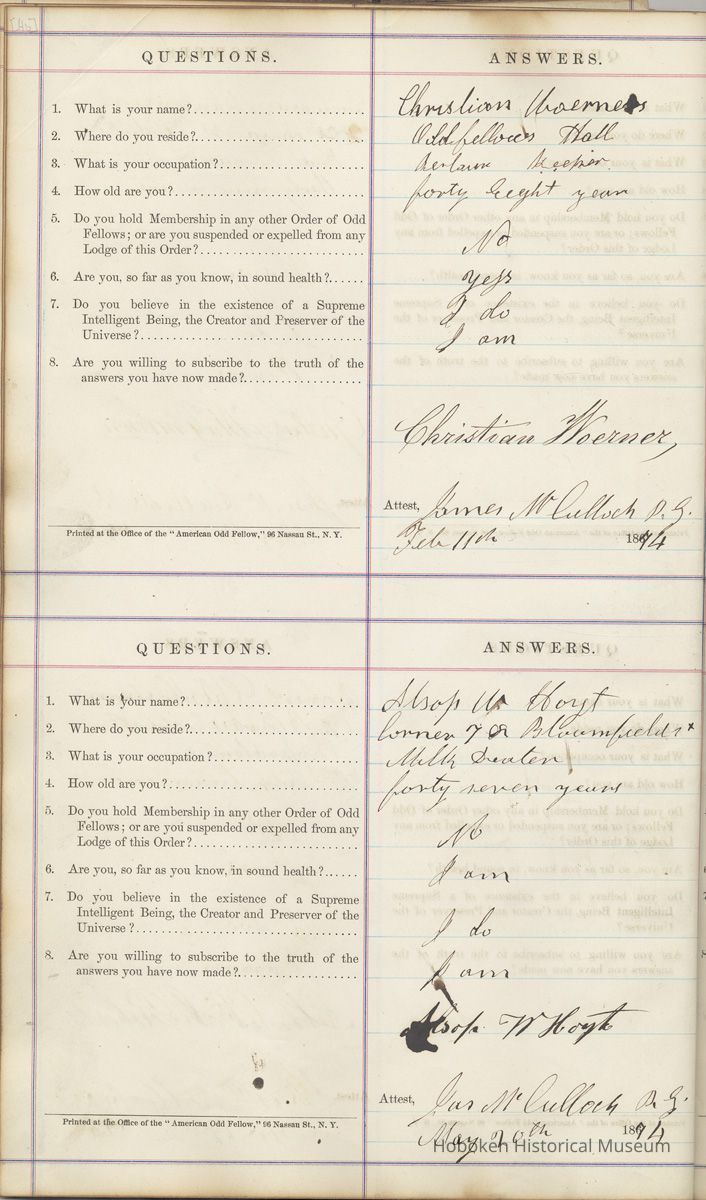 [45]
QUESTIONS.
ANSWERS.
1. What is your name?
Christian Woerner
2. Where do you reside?
Oddfellows Hall
3. What is your occupation?
Keeper
4. How old are you?
forty Eeght years
5. Do you hold Membership in any other Order of Odd
Fellows; or are you suspended or expelled from any
Lodge of this Order?
No
6. Are you, so far as you know, in sound health?
yess
7. Do you believe in the existence of a Supreme
Intelligent Being, the Creator and Preserver of the
Universe?
I do
8. Are you willing to subscribe to the truth of the
answers you have now made?
I am
Christian Woerner,
Attest, James McCulloch P. G.
Feb 11th 1874
Printed at the Office of the "American Odd Fellow," 96 Nassau St., N. Y.
QUESTIONS.
ANSWERS.
1. What is your name?
Alsop W Hoyt
2. Where do you reside?
Corner 7 & Bloomfield st
3. What is your occupation?
Milk Dealer
4. How old are you?
forty seven years
5. Do you hold Membership in any other Order of Odd
Fellows; or are you suspended or expelled from any
Lodge of this Order?
No
6. Are you, so far as you know, in sound health?
I am
7. Do you believe in the existence of a Supreme
Intelligent Being, the Creator and Preserver of the
Universe?
I do
8. Are you willing to subscribe to the truth of the
answers you have now made?
I am
Alsop W Hoyt
Attest, Jas McCulloch P. G.
May 20th 1874
Printed at the Office of the "American Odd Fellow," 96 Nassau St., N. Y.
Hoboken Historical Museum